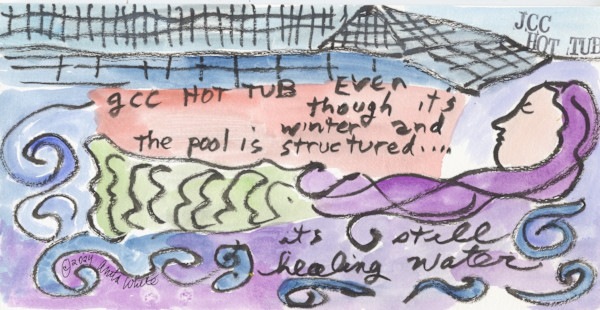 JCC
HOT TUB
JCC HOT TUB EVEN
though it's
winter and
the pool is structured....
its still
healing water
©2024 Anita White